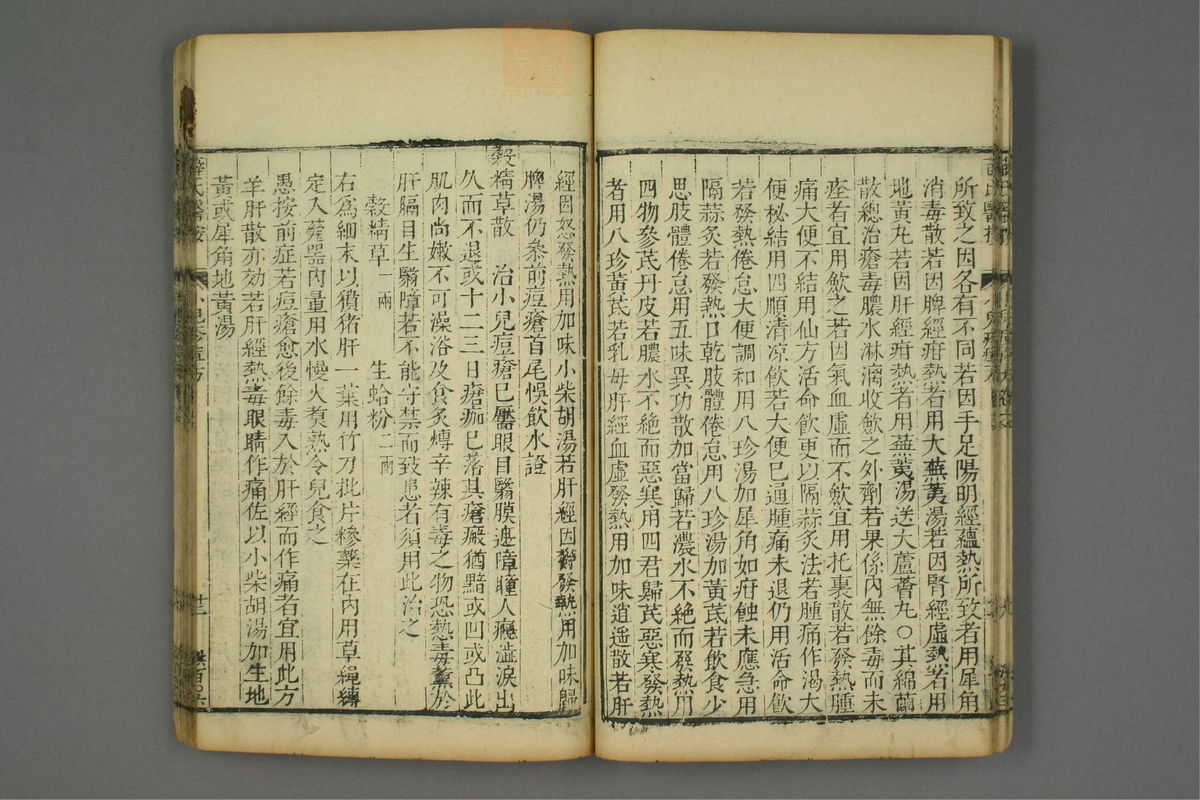 所致之因各有不同若因手足陽明經蘊熱所致者用犀角
消毒散若因脾經疳熱者用大蕪荑湯若因腎經虛熱者用
地黃丸若因肝經疳熱者用蕪荑湯送大蘆薈丸○其綿繭
散總治瘡毒膿水淋漓收斂之外劑若果係內無餘毒而未
痊者宜用斂之若因氣血虛而不斂宜用托裹散若發熱腫
痛大便不結用仙方活命飲更以隔蒜灸法若腫痛作渴大
便秘結用四順清凉飲若大便已通腫痛未退仍用活命飲
若發熱倦怠大便調和用八珍湯加犀角如疳蝕未應急用
隔蒜灸若發熱口乾肢體倦怠用八珍湯加黃芪若飲食少
思肢體倦怠用五味異功散加當歸若濃水不絶而發熱用
四物參芪丹皮若膿水不絶而惡寒用四君歸芪惡寒發熱
者用八珍黃芪若乳母肝經血虛發熱用加味逍遥散若肝
經因怒發熱用加味小柴胡湯若肝經因鬱發熱用加味歸
脾湯仍叅前痘瘡首尾悞飲水證
穀精草散 治小兒痘瘡已靨眼目翳膜遮障瞳人癮澁淚出
久而不退或十二三日瘡痂已落其瘡瘢猶黯或凹或凸此
肌肉尚嫩不可澡浴及食炙煿辛辣有毒之物恐熱毒薰於
肝膈目生翳障若不能守禁而致患者須用此治之
穀精草一兩 生蛤粉二兩
右爲細末以獖猪肝一葉用竹刀批片糝藥在內用草繩縛
定入甆器內量用水慢火煑熟令兒食之
愚按前症若痘瘡愈後餘毒入於肝經而作痛者宜用此方
羊肝散亦効若肝經熱毒眼睛作痛佐以小柴胡湯加生地
黃或犀角地黃湯
薛氏醫按